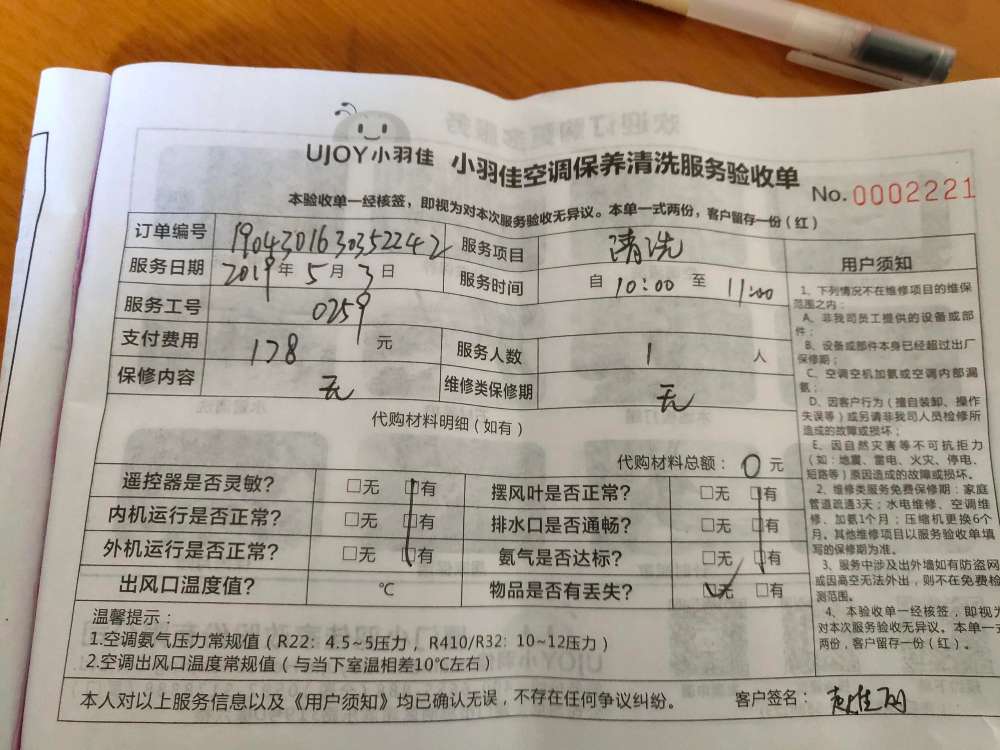 UJOY小羽佳 小羽佳空调保养清洗服务验收单 No.0002221
本验收单一经核签，即视为对本次服务验收无异议。本单一式两份，客户留存一份（红）
订单编号 19043016303522242 服务项目 清洗
服务日期 2019年5月3日 服务时间 自 10:00 至 11:00
服务工号 0259
支付费用 178 元 服务人数 1 人
保修内容 无 维修类保修期 无
代购材料明细（如有）
代购材料总额：0元
遥控器是否灵敏？ □无 □有 摆风叶是否正常？ □无 □有
内机运行是否正常？ □无 □有 排水口是否通畅？ □无 □有
外机运行是否正常？ □无 □有 氨气是否达标？ □无 □有
出风口温度值？ ℃ 物品是否有丢失？ □无 □有
温馨提示：
1.空调氨气压力常规值（R22：4.5~5压力，R410/R32：10~12压力）
2.空调出风口温度常规值（与当下室温相差10℃左右）
本人对以上服务信息以及《用户须知》均已确认无误，不存在任何争议纠纷。 客户签名：
用户须知
1、下列情况不在维修项目的维保
范围之内：
A、非我司员工提供的设备或部
件；
B、设备或部件本身已经超过出厂
保修期；
C、空调空机加氨或空调内部漏
氨；
D、因客户行为（擅自装卸、操作
失误等）或另请非我司人员检修所
造成的故障或损坏；
E、因自然灾害等不可抗拒力
（如：地震、雷电、火灾、停电、
短路等）原因造成的故障或损坏。
2、维修类服务免费保修期：家庭
管道疏通3天；水电维修、空调维
修、加氨1个月；压缩机更换6个
月。其他维修项目以服务验收单填
写的保修期为准。
3、服务中涉及出外墙如有防盗网
或因高空无法外出，则不在免费检
测范围。
4、本验收单一经核签，即视为
对本次服务验收无异议。本单一式
两份，客户留存一份（红）。